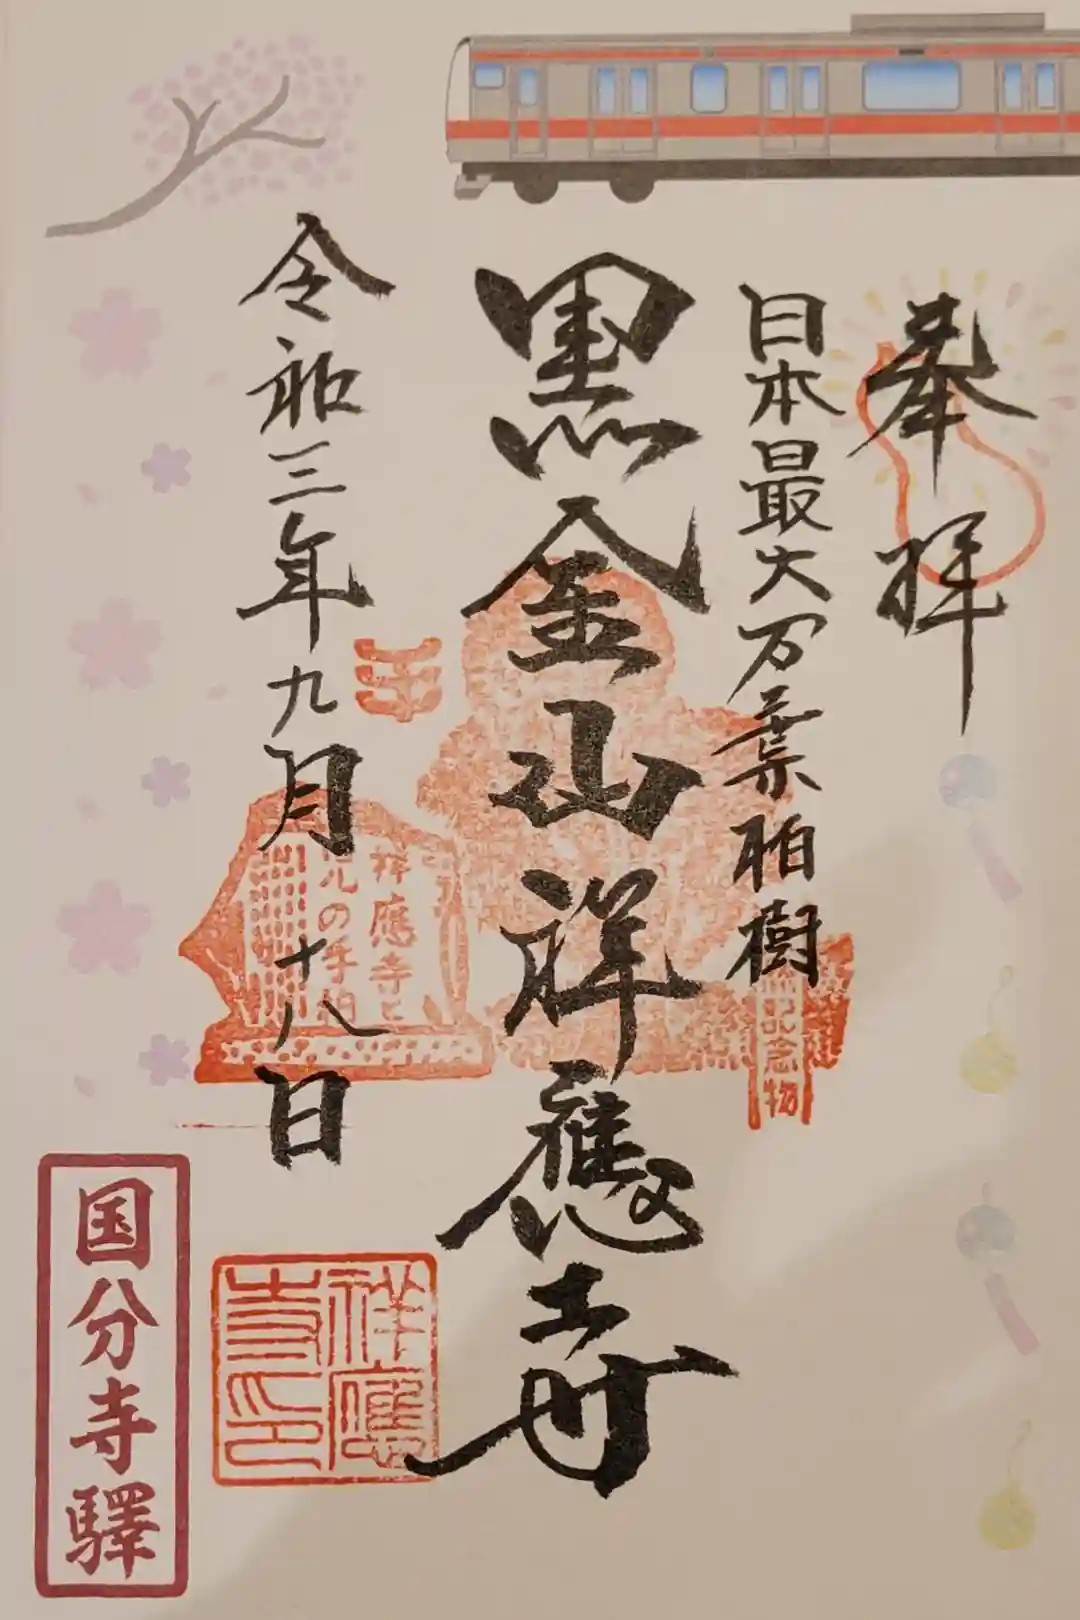 奉拝
日本最大万葉柏樹
黒金山祥應寺
令和三年九月十八日
祥應寺と
児の手柏
記念物
祥應
寺印
国分寺驛